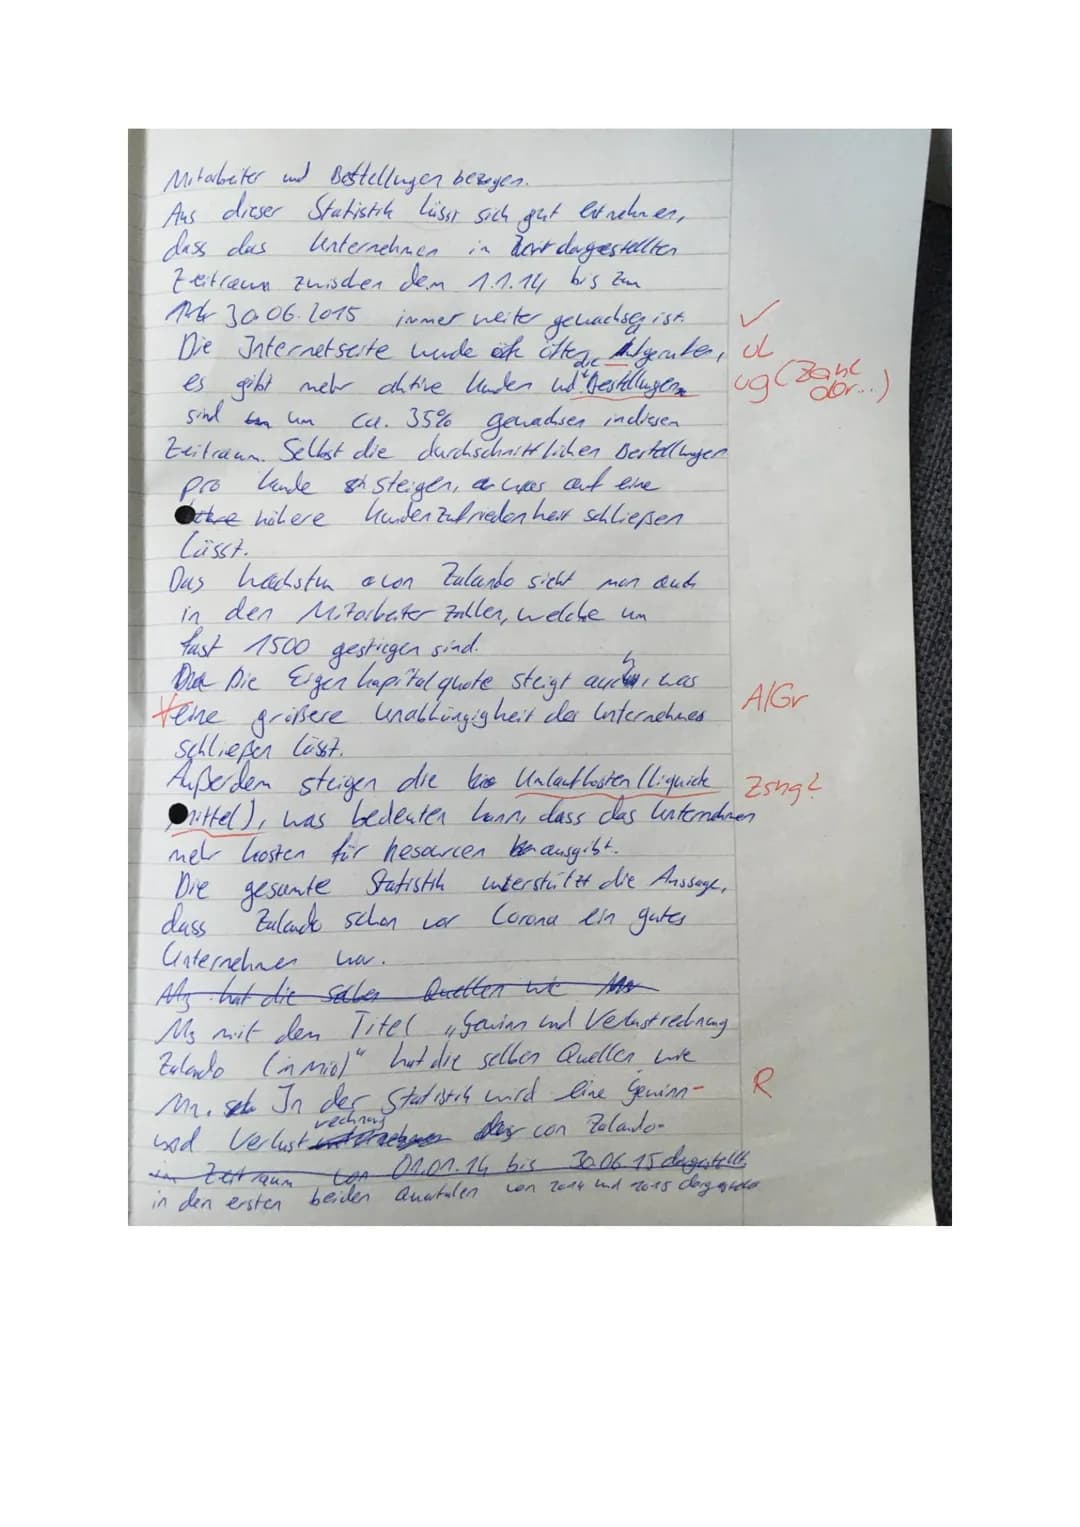 Mitarbeiter und Bestellungen bezogen.
Aus dieser Statistik lässt sich gut entnehmen,
dass das Unternehmen in dargestellten
Zeitraum zwischen dem 1.1.14 bis zum
30.06.2015 immer weiter gewachsen ist. ✓
Die Internetseite wurde öfter Aufgerufen, UL
es gibt mehr aktive Kunden und die Bestellungen ug (Zahl der...)
sind um ca. 35% gewachsen in diesen
Zeitraum. Selbst die durchschnittlichen Bestellungen
pro Kunde steigen, was auf eine
höhere Kundenzufriedenheit schließen
lässt.
Das wachstum von Zalando sieht man auch
in den Mitarbeiter Zahlen, welche um
fast 1500 gestiegen sind.
Die Eigenkapitalquote steigt auch, was
eine größere Unabhängigkeit des Unternehmes A/Gr
schließen lässt.
Außerdem steigen die Umlaufkosten (Liquide Zshg?
mittel), was bedeuten kann, dass das Unternehmen
mehr kosten für Resourcen ausgibt.
Die gesamte Statistik unterstützt die Aussage,
dass Zalando schon vor Corona ein gutes
Unternehmen war.
M3 hat die selben Quellen wie
M3 mit dem Titel „Gewinn und Verlustrechnung
Zalando (in mio)" hat die selben Quellen wie
In der Statistik wird eine Gewinn- R
und Verlustrechnung von Zalando
im Zeitraum von 01.01.14 bis 30.06.15 dargestellt
in den ersten beiden Quartalen von 2014 und 2015 dargestellt